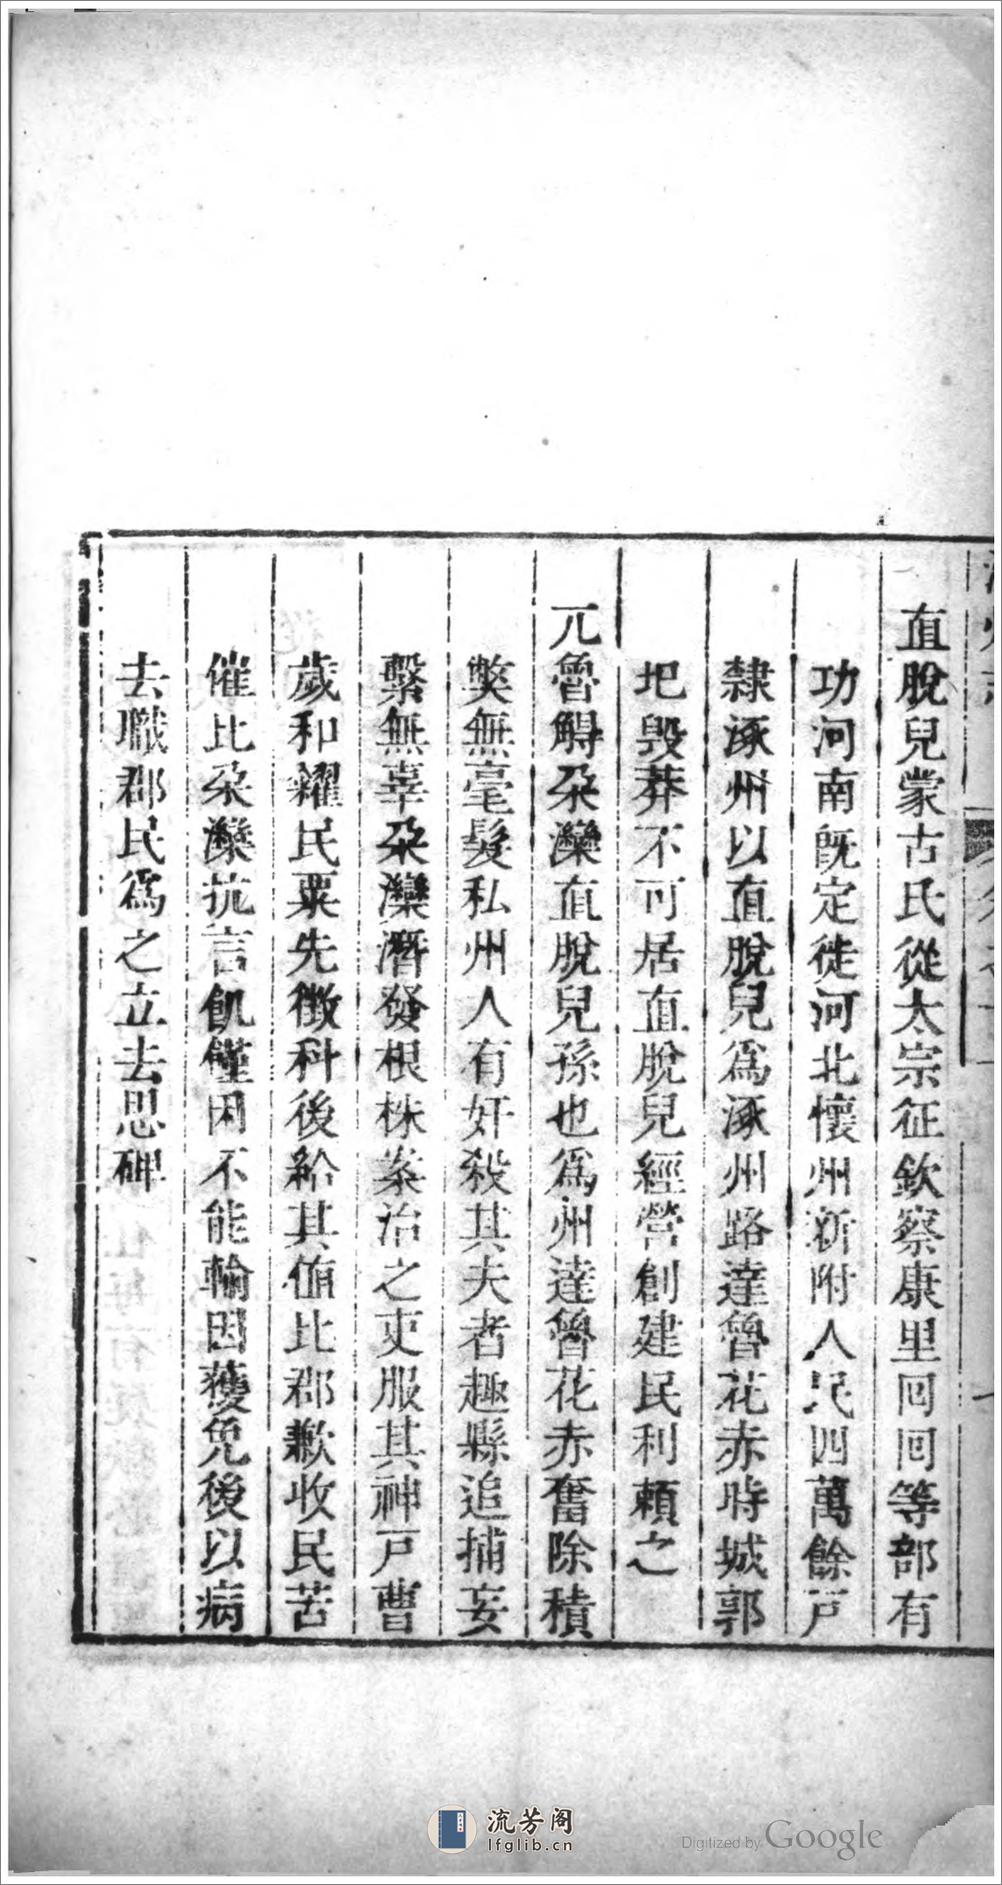 直脫兒蒙古氏從太宗征欽察康里回回等部有
功河南旣定徙河北懷州新附人民四萬餘戸
隸涿州以直脫兒爲涿州路達魯花赤時城郭
圯毀莽不可居直脫兒經營創建民利賴之
兀魯䚟朶灤直脫兒孫也爲州達魯花赤奮除積
獘無毫髮私州人有奸殺其夫者趣縣追捕妄
繫無辜朶灤潛發根株案治之吏服其神戸曹
歲和糴民粟先徴科後給其値比郡歉收民苦
催比朶灤抗言飢饉困不能輸因獲免後以病
去職郡民爲之立去思碑
流芳阁
lfglib.cn
Digitized by Google